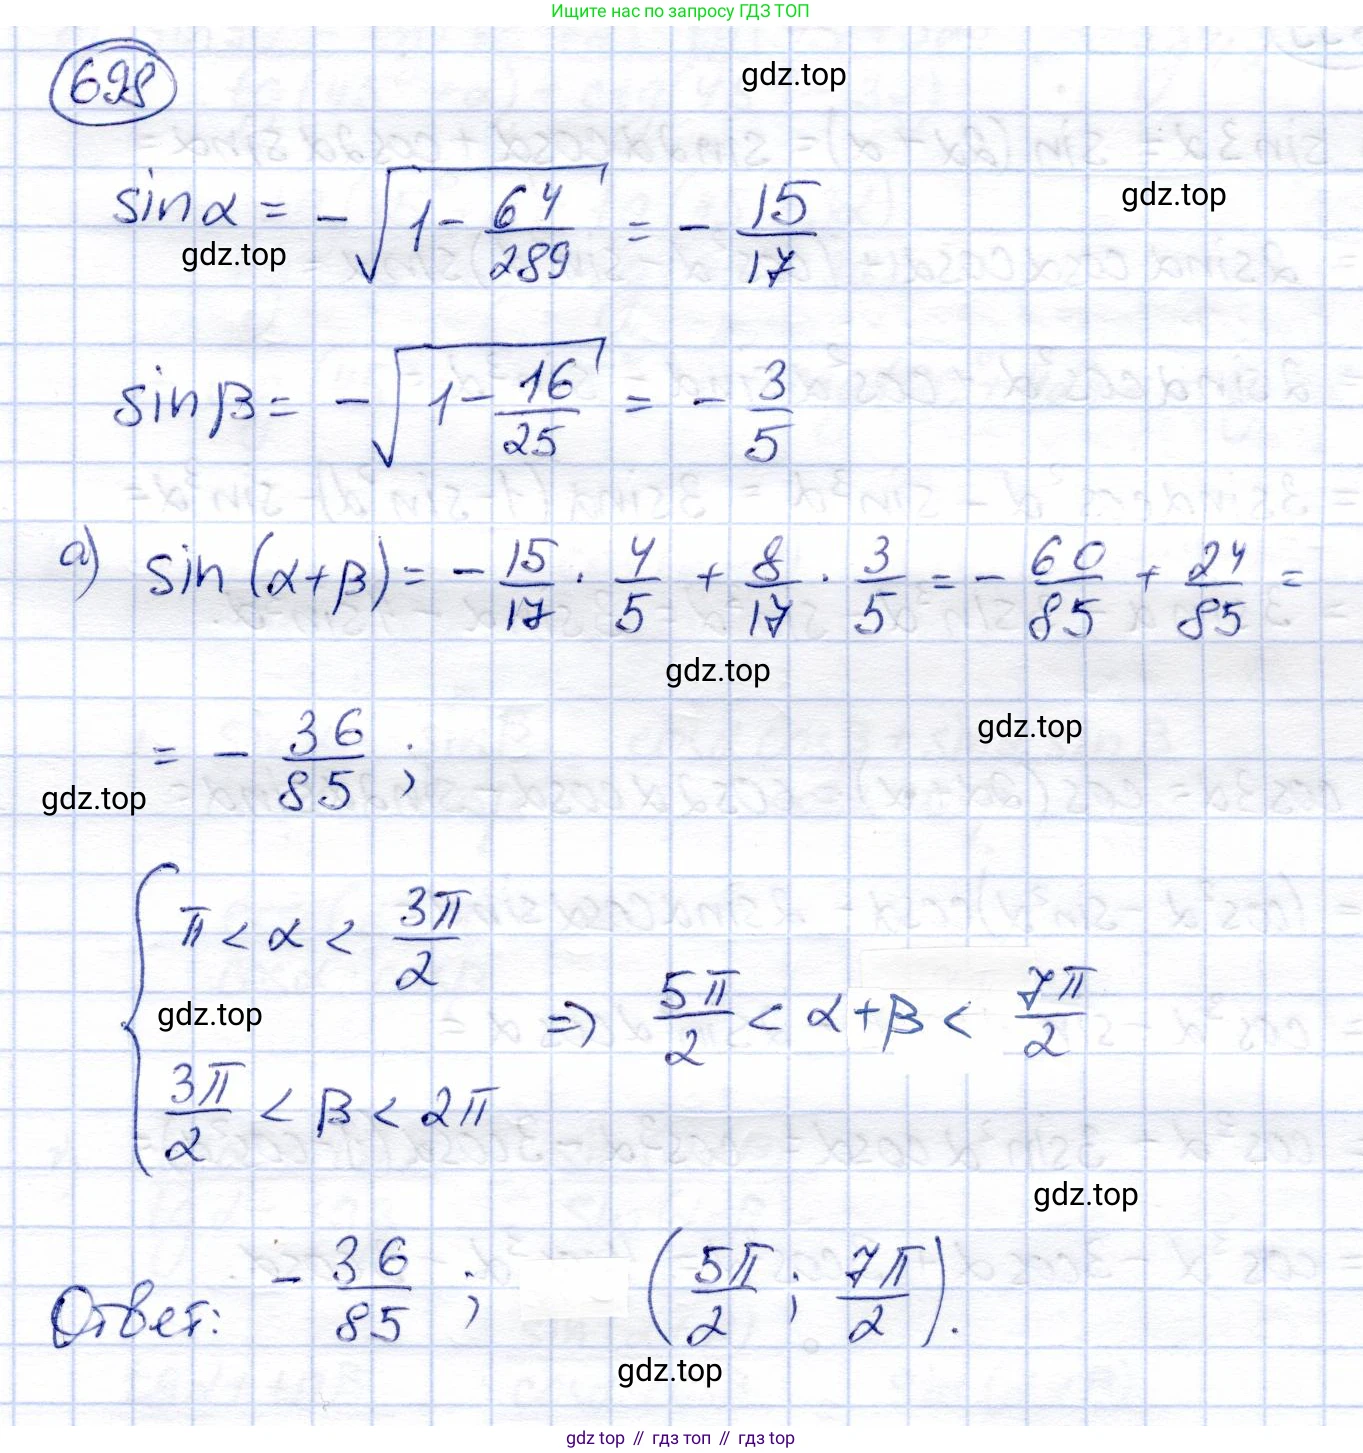 Ищите нас по запросу ГДЗ ТОП
698
gdz.top
sinα = -√(1 - 64/289) = - 15/17
gdz.top
gdz.top
sinβ = -√(1 - 16/25) = - 3/5
а) sin(α+β) = - 15/17 · 4/5 + 8/17 · 3/5 = - 60/85 + 24/85 =
gdz.top
= - 36/85 ;
gdz.top
gdz.top
{ π < α < 3π/2
gdz.top
⇒ 5π/2 < α+β < 7π/2
3π/2 < β < 2π
gdz.top
Ответ: - 36/85 ; (5π/2 ; 7π/2).
gdz.top
gdz top // гдз топ // гдз top